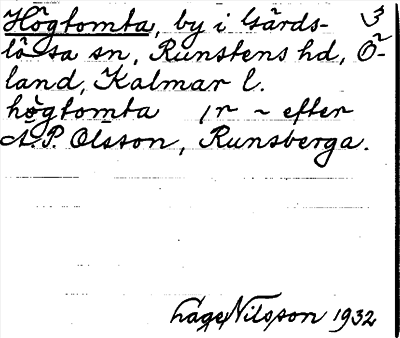 Högtomta, by i Gärds- 3
lösa sn, Runstens hd, Ö-
land, Kalmar l.
högtomta ſr ~ efter
A. P. Olsson, Runsberga.
Lage Nilsson 1932